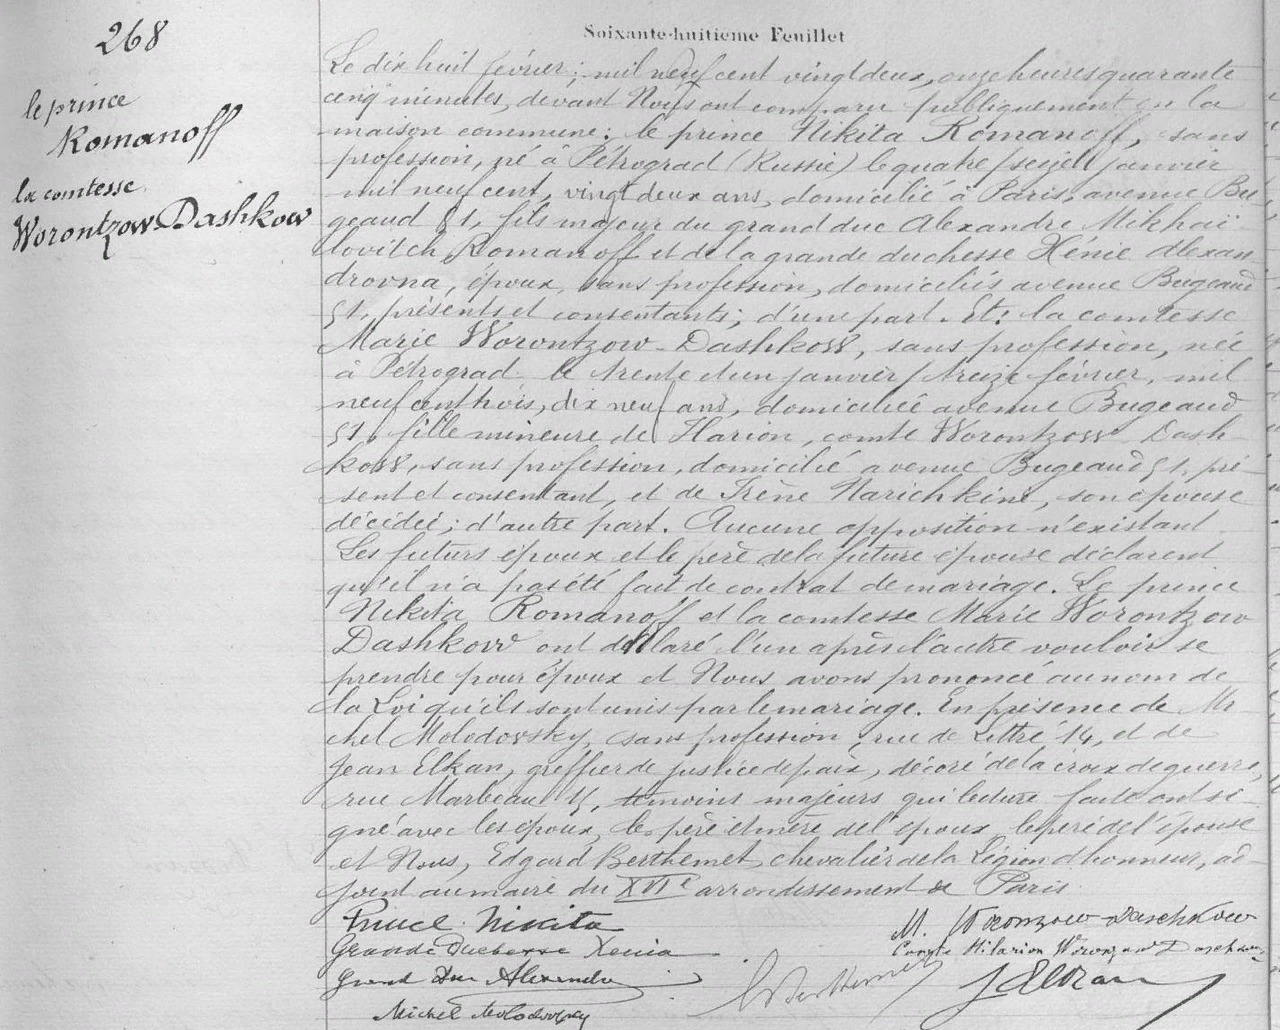 268
Soixante-huitième Feuillet
le prince
Romanoff
la comtesse
Worontzow Dashkow
Le dix huit février, mil neuf cent vingt deux, onze heures quarante
cinq minutes, devant Nous ont comparu publiquement en la
maison commune: le prince Nikita Romanoff, sans
profession, né à Pétrograd (Russie) le quatre/seize janvier
mil neuf cent, vingt deux ans, domicilié à Paris, avenue Bu
geaud 51, fils majeur du grand duc Alexandre Mikhaï
lovitch Romanoff et de la grande duchesse Xénie Alexan
drovna, époux, sans profession, domiciliés avenue Bugeaud
51, présents et consentants; d'une part. Et: la comtesse
Marie Worontzow-Dashkow, sans profession, née
à Pétrograd le trente et un janvier/treize février, mil
neuf cent trois, dix neuf ans, domiciliée avenue Bugeaud
51, fille mineure de Ilarion, comte Worontzow Dash-
kow, sans profession, domicilié avenue Bugeaud 51, pré-
sent et consentant, et de Irène Narichkine, son épouse
décédée; d'autre part. Aucune opposition n'existant
Les futurs époux et le père de la future épouse déclarent
qu'il n'a pas été fait de contrat de mariage. Le prince
Nikita Romanoff et la comtesse Marie Worontzow
Dashkow ont déclaré l'un après l'autre vouloir se
prendre pour époux et Nous avons prononcé au nom de
la Loi qu'ils sont unis par le mariage. En présence de Mi
chel Molodovsky, sans profession, rue de Littré 14, et de
Jean Elkan, greffier de justice de paix, décoré de la croix de guerre,
rue Marbeau, témoins majeurs qui lecture faite ont si-
gné avec les époux, les père et mère de l'époux, le père de l'épouse
et Nous, Edgard Berthemet, chevalier de la Légion d'honneur, ad
joint au maire du XVIe arrondissement de Paris.
Prince Nikita
M. Woronzow-Daschkow
Grande Duchesse Xenia
Comte Hilarion Woronzow Daschkow
Grand Duc Alexandre
EBerthemet
JElkan
Michel Molodovsky